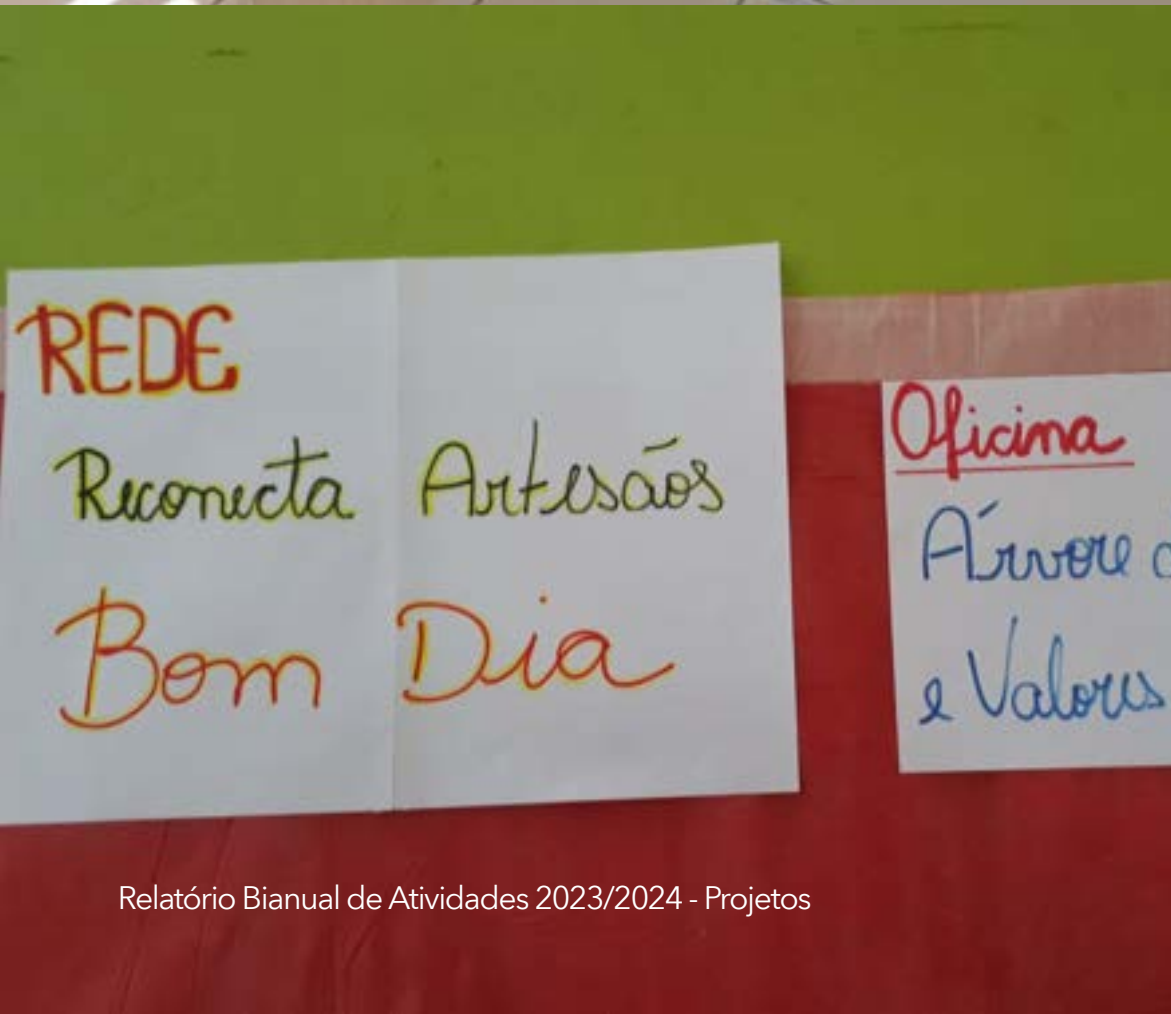 REDE
Reconecta Artesãos
Bom Dia
Oficina
Árvore
e Valores
Relatório Bianual de Atividades 2023/2024 - Projetos